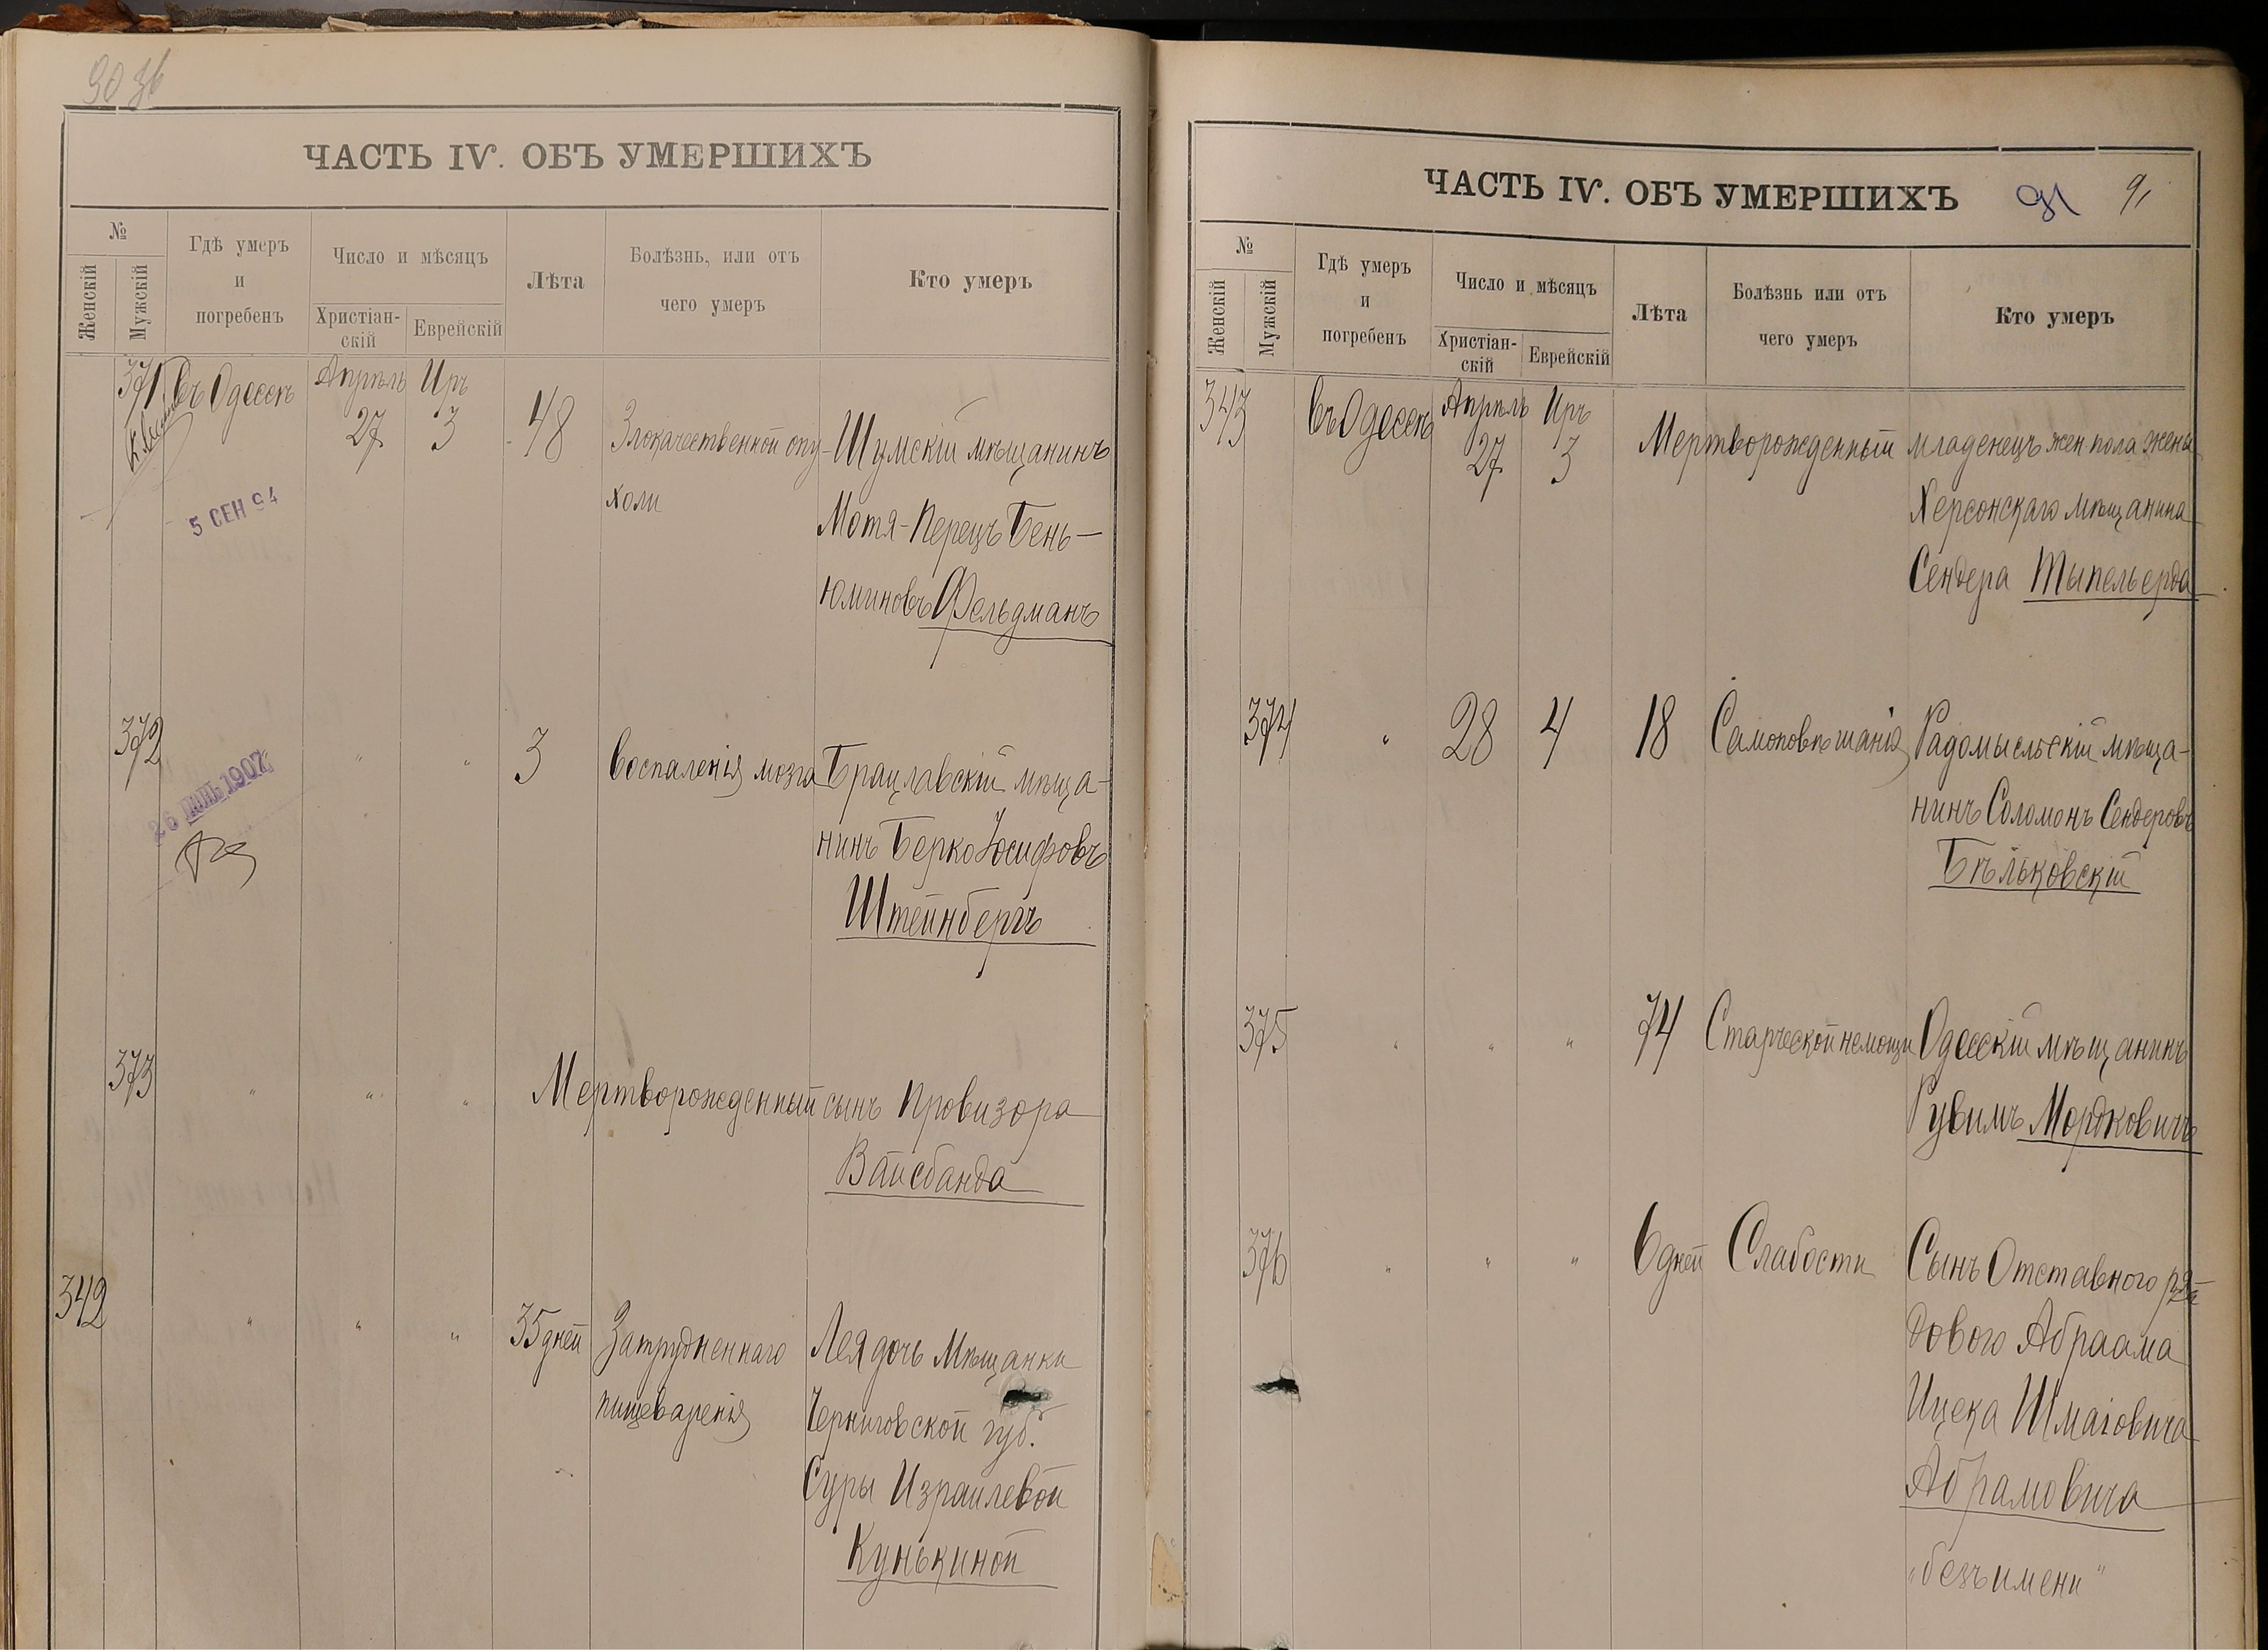 90 зв
ЧАСТЬ IV. ОБЪ УМЕРШИХЪ
№
Женскій
Мужскій
Гдѣ умеръ
и
погребенъ
Число и мѣсяцъ
Христіан-
скій
Еврейскій
Лѣта
Болѣзнь, или отъ
чего умеръ
Кто умеръ
371 въ Одессѣ Апрѣль 27 Иръ 3 48 Злокачественной опу- Шумскій мѣщанинъ
холи Мотя-Перецъ Бень-
юминовъ Фельдманъ
5 СЕН 94
372 " " 3 Воспаленія мозга Брацлавскій мѣща-
нинъ Берко Іосифовъ
Штейнбергъ
26 1907
373 " " " Мертворожденный сынъ Провизора
Вайсбанда
342 " " " 35 дней Затрудненнаго Лея дочь Мѣщанки
пищеваренія Черниговской губ.
Суры Израилевой
Кунькиной
ЧАСТЬ IV. ОБЪ УМЕРШИХЪ 91 91
№
Женскій
Мужскій
Гдѣ умеръ
и
погребенъ
Число и мѣсяцъ
Христіан-
скій
Еврейскій
Лѣта
Болѣзнь или отъ
чего умеръ
Кто умеръ
343 въ Одессѣ Апрѣль 27 Иръ 3 Мертворожденный младенецъ жен. пола жены
Херсонскаго мѣщанина
Сендера
374 " 28 4 18 Самоповѣшанія Радомысльскій мѣща-
нинъ Соломонъ Сендеровъ
Бѣльковскій
375 " " " 74 Старческой немощи Одесскій мѣщанинъ
Рувимъ Мордковичъ
376 " " " 6 дней Слабости Сынъ Отставного ря-
дового Абраама
Ицека Шмаіовича
Абрамовича
"безъ имени"